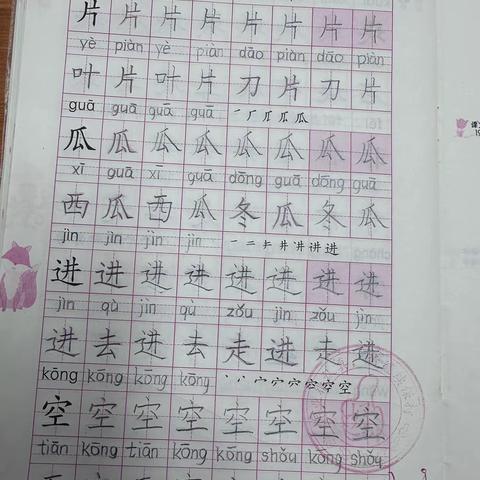 片 片 片 片 片 片 片 片
yè piàn yè piàn dāo piàn dāo piàn
叶 片 叶 片 刀 片 刀 片
guā guā guā guā
瓜 瓜 瓜 瓜 瓜 瓜 瓜 瓜
xī guā xī guā dōng guā dōng guā
西 瓜 西 瓜 冬 瓜 冬 瓜
jìn jìn jìn jìn
进 进 进 进 进 进 进 进
jìn qù jìn qù zǒu jìn zǒu jìn
进 去 进 去 走 进 走 进
kōng kōng kōng kōng
空 空 空 空 空 空 空 空
tiān kōng tiān kōng kōng shǒu kōng shǒu